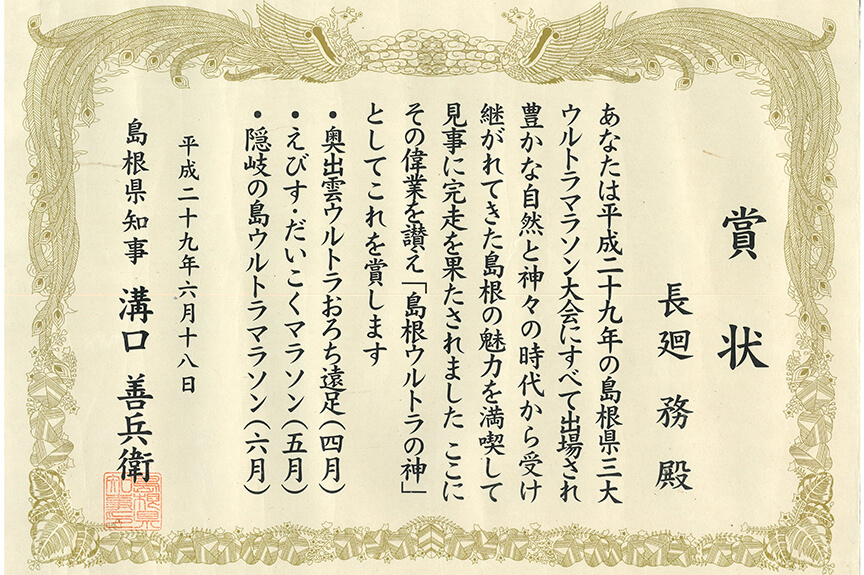 賞状
長廻 務 殿
あなたは平成二十九年の島根県三大
ウルトラマラソン大会にすべて出場され
豊かな自然と神々の時代から受け
継がれてきた島根の魅力を満喫して
見事に完走を果たされました ここに
その偉業を讃え「島根ウルトラの神」
としてこれを賞します
・奥出雲ウルトラおろち遠足(四月)
・えびす・だいこくマラソン(五月)
・隠岐の島ウルトラマラソン(六月)
平成二十九年六月十八日
島根県知事 溝口 善兵衛